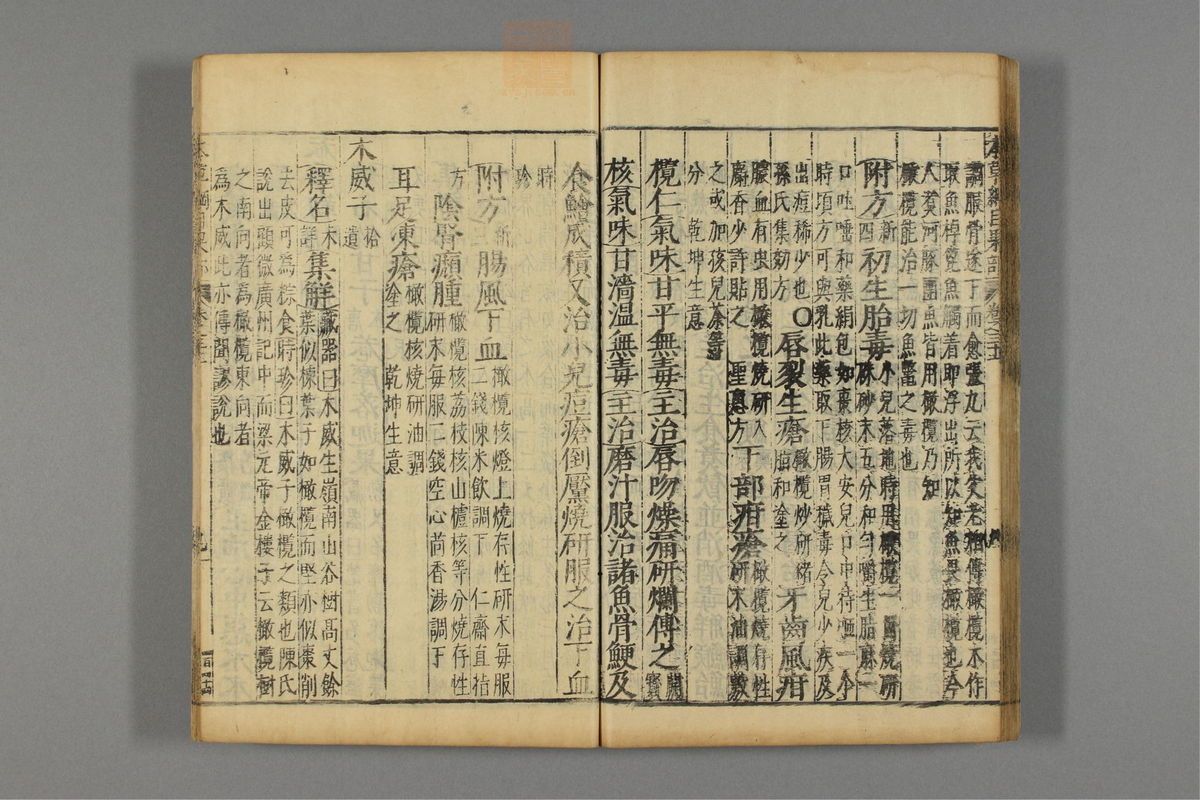 本草綱目果部 卷之三十一 九
謂服骨遂下而愈張九云我父老相傳橄欖木作
取魚棹篦魚觸着即浮出所以知魚畏橄欖也今
人煮河豚團魚皆用橄欖乃知
橄欖能治一切魚鱉之毒也
附方新四初生胎毒小兒落地時用橄欖一箇燒研
硃砂末五分和勻嚼生脂麻一
口吐唾和藥絹包如棗核大安兒口中待咂一个
時頃方可與乳此藥取下腸胃穢毒令兒少疾及
出痘稀少也
孫氏集効方
○唇裂生瘡橄欖炒研猪
脂和塗之
牙齒風疳
膿血有虫用橄欖燒研入
麝香少許貼之 聖惠方
下部疳瘡橄欖燒存性
研末油調敷
之或加孩兒茶等
分 乾坤生意
欖仁氣味甘平無毒主治唇吻燥痛研爛傅之開寶
核氣味甘濇溫無毒主治磨汁服治諸魚骨鯁及
食鱠成積又治小兒痘瘡倒黶燒研服之治下血
時珍
附方新三腸風下血橄欖核燈上燒存性研末每服
二錢陳米飲調下 仁齋直指
方
陰腎㿗腫橄欖核荔枝核山樝核等分燒存性
研末每服二錢空心茴香湯調下
耳足凍瘡橄欖核燒研油調
塗之 乾坤生意
木威子拾遺
釋名未詳集解藏器曰木威生嶺南山谷樹高丈餘
葉似楝葉子如橄欖而堅亦似棗削
去皮可為粽食時珍曰木威子橄欖之類也陳氏
說出顧微廣州記中而梁元帝金樓子云橄欖樹
之南向者為橄欖東向者
為木威此亦傳聞謬說也